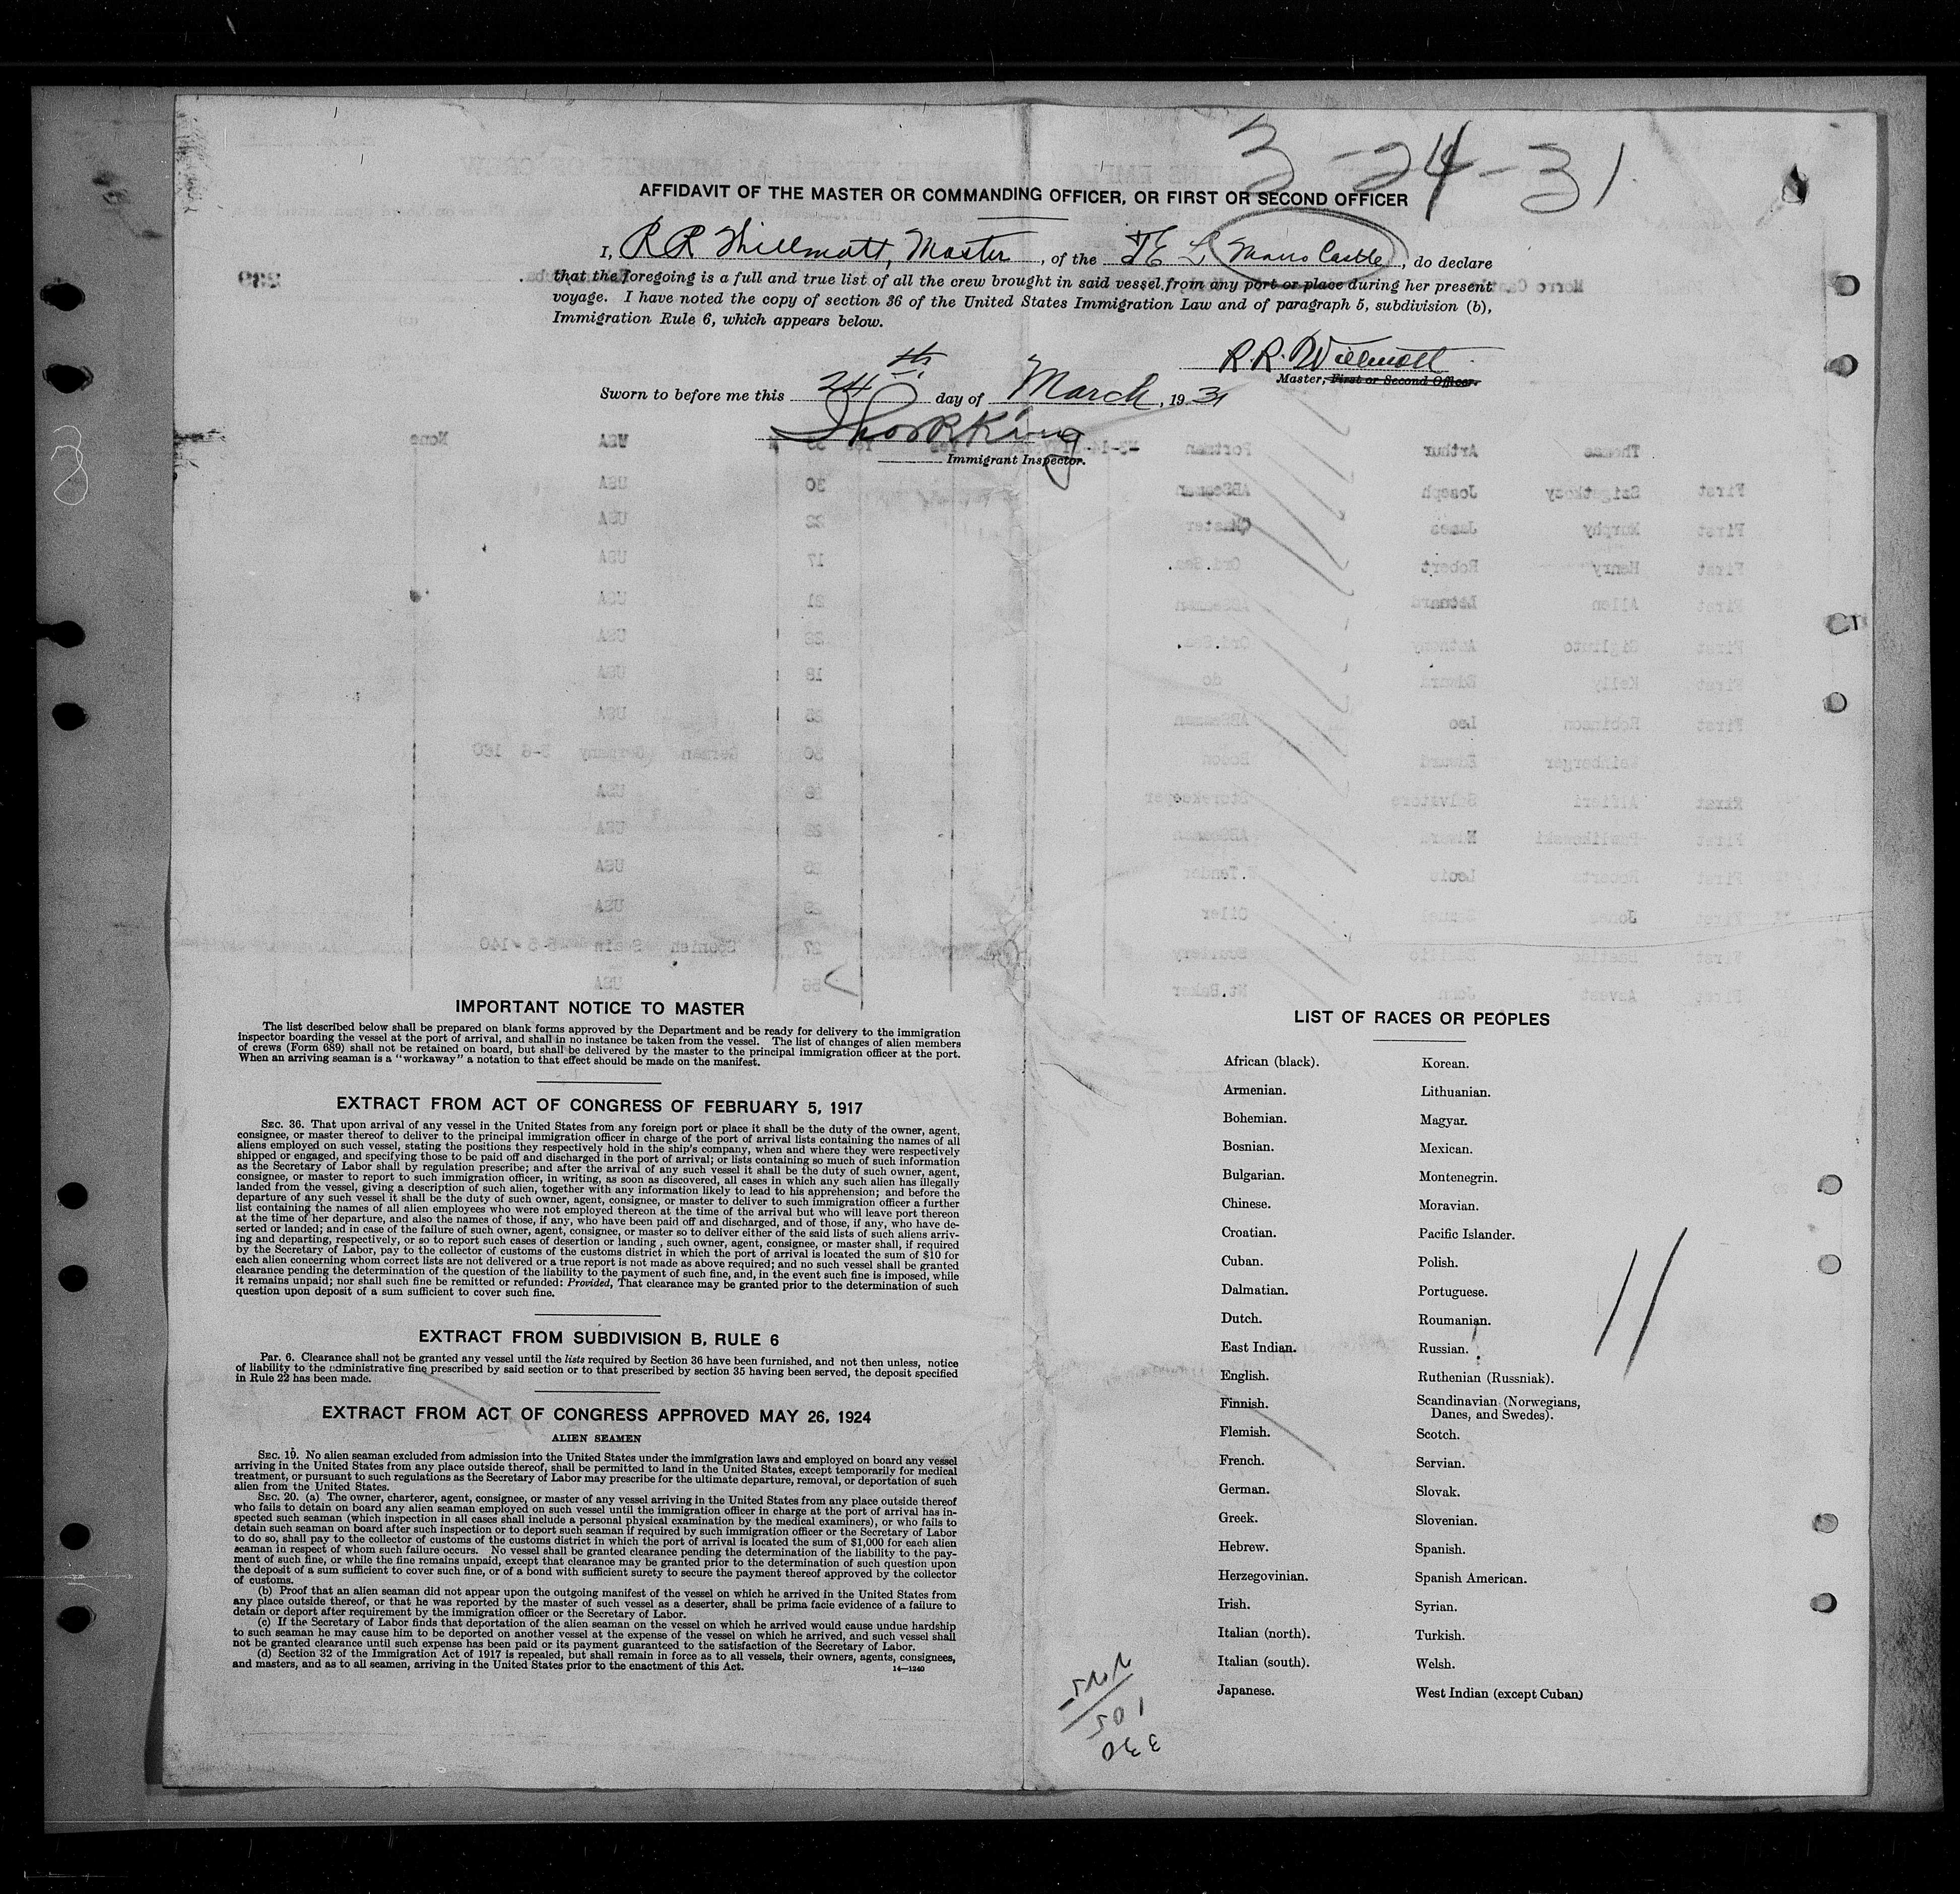 3-24-31
AFFIDAVIT OF THE MASTER OR COMMANDING OFFICER, OR FIRST OR SECOND OFFICER
I, R R Willmott, Master, of the Morro Castle, do declare
that the foregoing is a full and true list of all the crew brought in said vessel from any port or place during her present
voyage. I have noted the copy of section 36 of the United States Immigration Law and of paragraph 5, subdivision (b),
Immigration Rule 6, which appears below.
R. R. Willmott
Master, First or Second Officer.
Sworn to before me this 24th day of March, 1931
Immigrant Inspector.
IMPORTANT NOTICE TO MASTER
The list described below shall be prepared on blank forms approved by the Department and be ready for delivery to the immigration
inspector boarding the vessel at the port of arrival, and shall in no instance be taken from the vessel. The list of changes of alien members
of crews (Form 689) shall not be retained on board, but shall be delivered by the master to the principal immigration officer at the port.
When an arriving seaman is a "workaway" a notation to that effect should be made on the manifest.
EXTRACT FROM ACT OF CONGRESS OF FEBRUARY 5, 1917
SEC. 36. That upon arrival of any vessel in the United States from any foreign port or place it shall be the duty of the owner, agent,
consignee, or master thereof to deliver to the principal immigration officer in charge of the port of arrival lists containing the names of all
aliens employed on such vessel, stating the positions they respectively hold in the ship's company, when and where they were respectively
shipped or engaged, and specifying those to be paid off and discharged in the port of arrival; or lists containing so much of such information
as the Secretary of Labor shall by regulation prescribe; and after the arrival of any such vessel it shall be the duty of such owner, agent,
consignee, or master to report to such immigration officer, in writing, as soon as discovered, all cases in which any such alien has illegally
landed from the vessel, giving a description of such alien, together with any information likely to lead to his apprehension; and before the
departure of any such vessel it shall be the duty of such owner, agent, consignee, or master to deliver to such immigration officer a further
list containing the names of all alien employees who were not employed thereon at the time of the arrival but who will leave port thereon
at the time of her departure, and also the names of those, if any, who have been paid off and discharged, and of those, if any, who have de-
serted or landed; and in case of the failure of such owner, agent, consignee, or master so to deliver either of the said lists of such aliens arriv-
ing and departing, respectively, or so to report such cases of desertion or landing , such owner, agent, consignee, or master shall, if required
by the Secretary of Labor, pay to the collector of customs of the customs district in which the port of arrival is located the sum of $10 for
each alien concerning whom correct lists are not delivered or a true report is not made as above required; and no such vessel shall be granted
clearance pending the determination of the question of the liability to the payment of such fine, and, in the event such fine is imposed, while
it remains unpaid; nor shall such fine be remitted or refunded: Provided, That clearance may be granted prior to the determination of such
question upon deposit of a sum sufficient to cover such fine.
EXTRACT FROM SUBDIVISION B, RULE 6
Par. 6. Clearance shall not be granted any vessel until the lists required by Section 36 have been furnished, and not then unless, notice
of liability to the administrative fine prescribed by said section or to that prescribed by section 35 having been served, the deposit specified
in Rule 22 has been made.
EXTRACT FROM ACT OF CONGRESS APPROVED MAY 26, 1924
ALIEN SEAMEN
SEC. 19. No alien seaman excluded from admission into the United States under the immigration laws and employed on board any vessel
arriving in the United States from any place outside thereof, shall be permitted to land in the United States, except temporarily for medical
treatment, or pursuant to such regulations as the Secretary of Labor may prescribe for the ultimate departure, removal, or deportation of such
alien from the United States.
SEC. 20. (a) The owner, charterer, agent, consignee, or master of any vessel arriving in the United States from any place outside thereof
who fails to detain on board any alien seaman employed on such vessel until the immigration officer in charge at the port of arrival has in-
spected such seaman (which inspection in all cases shall include a personal physical examination by the medical examiners), or who fails to
detain such seaman on board after such inspection or to deport such seaman if required by such immigration officer or the Secretary of Labor
to do so, shall pay to the collector of customs of the customs district in which the port of arrival is located the sum of $1,000 for each alien
seaman in respect of whom such failure occurs. No vessel shall be granted clearance pending the determination of the liability to the pay-
ment of such fine, or while the fine remains unpaid, except that clearance may be granted prior to the determination of such question upon
the deposit of a sum sufficient to cover such fine, or of a bond with sufficient surety to secure the payment thereof approved by the collector
of customs.
(b) Proof that an alien seaman did not appear upon the outgoing manifest of the vessel on which he arrived in the United States from
any place outside thereof, or that he was reported by the master of such vessel as a deserter, shall be prima facie evidence of a failure to
detain or deport after requirement by the immigration officer or the Secretary of Labor.
(c) If the Secretary of Labor finds that deportation of the alien seaman on the vessel on which he arrived would cause undue hardship
to such seaman he may cause him to be deported on another vessel at the expense of the vessel on which he arrived, and such vessel shall
not be granted clearance until such expense has been paid or its payment guaranteed to the satisfaction of the Secretary of Labor.
(d) Section 32 of the Immigration Act of 1917 is repealed, but shall remain in force as to all vessels, their owners, agents, consignees,
and masters, and as to all seamen, arriving in the United States prior to the enactment of this Act.
14—1240
LIST OF RACES OR PEOPLES
African (black).
Armenian.
Bohemian.
Bosnian.
Bulgarian.
Chinese.
Croatian.
Cuban.
Dalmatian.
Dutch.
East Indian.
English.
Finnish.
Flemish.
French.
German.
Greek.
Hebrew.
Herzegovinian.
Irish.
Italian (north).
Italian (south).
Japanese.
Korean.
Lithuanian.
Magyar.
Mexican.
Montenegrin.
Moravian.
Pacific Islander.
Polish.
Portuguese.
Roumanian.
Russian.
Ruthenian (Russniak).
Scandinavian (Norwegians,
Danes, and Swedes).
Scotch.
Servian.
Slovak.
Slovenian.
Spanish.
Spanish American.
Syrian.
Turkish.
Welsh.
West Indian (except Cuban)
11
225
105
330